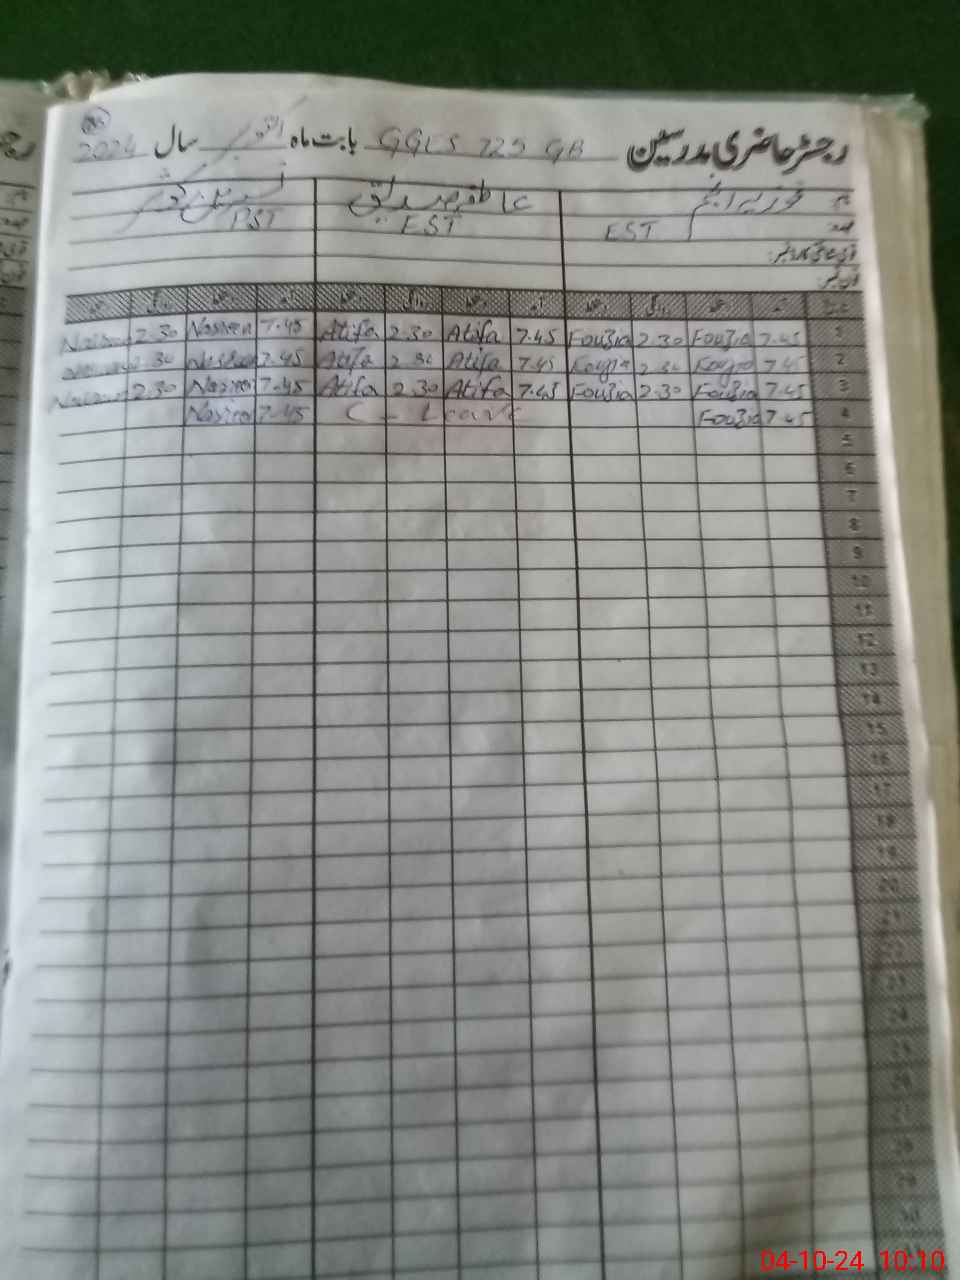 رجسٹر حاضری مدرسین GGES 725 GB بابت ماہ اکتوبر سال 2024
نام فوزیہ انجم عاطفہ صدیق نسرین کوثر
عہدہ EST EST PST
قومی شناختی کارڈ نمبر:
فون نمبر:
1 7.45 Fouzia 2.30 Fouzia 7.45 Atifa 2.30 Atifa 7.45 Nasreen 2.30
2 7.45 2.30 7.45 Atifa 2.30 Atifa 7.45 Nasreen 2.30
3 7.45 Fouzia 2.30 Fouzia 7.45 Atifa 2.30 Atifa 7.45 Nasreen 2.30
4 7.45 Fouzia C - Leave 7.45 Nasreen
5
6
7
8
9
10
11
12
13
14
15
16
17
18
19
20
21
22
23
24
25
26
27
28
29
30
04-10-24 10:10